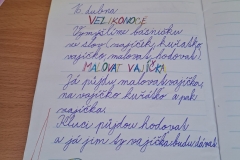 V dubnu
VELIKONOCE
Vymýšlíme básničku
ze slov (vajíček, kuřátko,
vajíčko, malovat, hodovat)
MALOVAT VAJÍČKA
Já půjdu malovat vajíčka,
na vajíčko kuřátko a pak
vajíčka.
Kluci půjdou hodovat
a já jim ty vajíčka budu dávat.